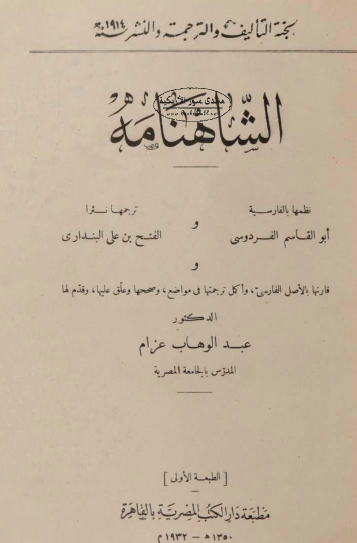 لجنة التأليف والترجمة والنشر سنة ١٩١٤
منتدى سور الأزبكية
الشَّاهنَامَه
نظمها بالفارسية
أبو القاسم الفردوسى
و
ترجمها نثرا
الفتح بن على البندارى
و
قارنها بالأصل الفارسىّ، وأكمل ترجمتها فى مواضع، وصححها وعلّق عليها، وقدّم لها
الدكتور
عبد الوهاب عزام
المدرّس بالجامعة المصرية
[ الطبعة الأولى ]
مَطبَعَة دَارُ الكُتُبِ المِصْريَّة بالقاهِرَة
١٣٥٠ ھ - ١٩٣٢ م